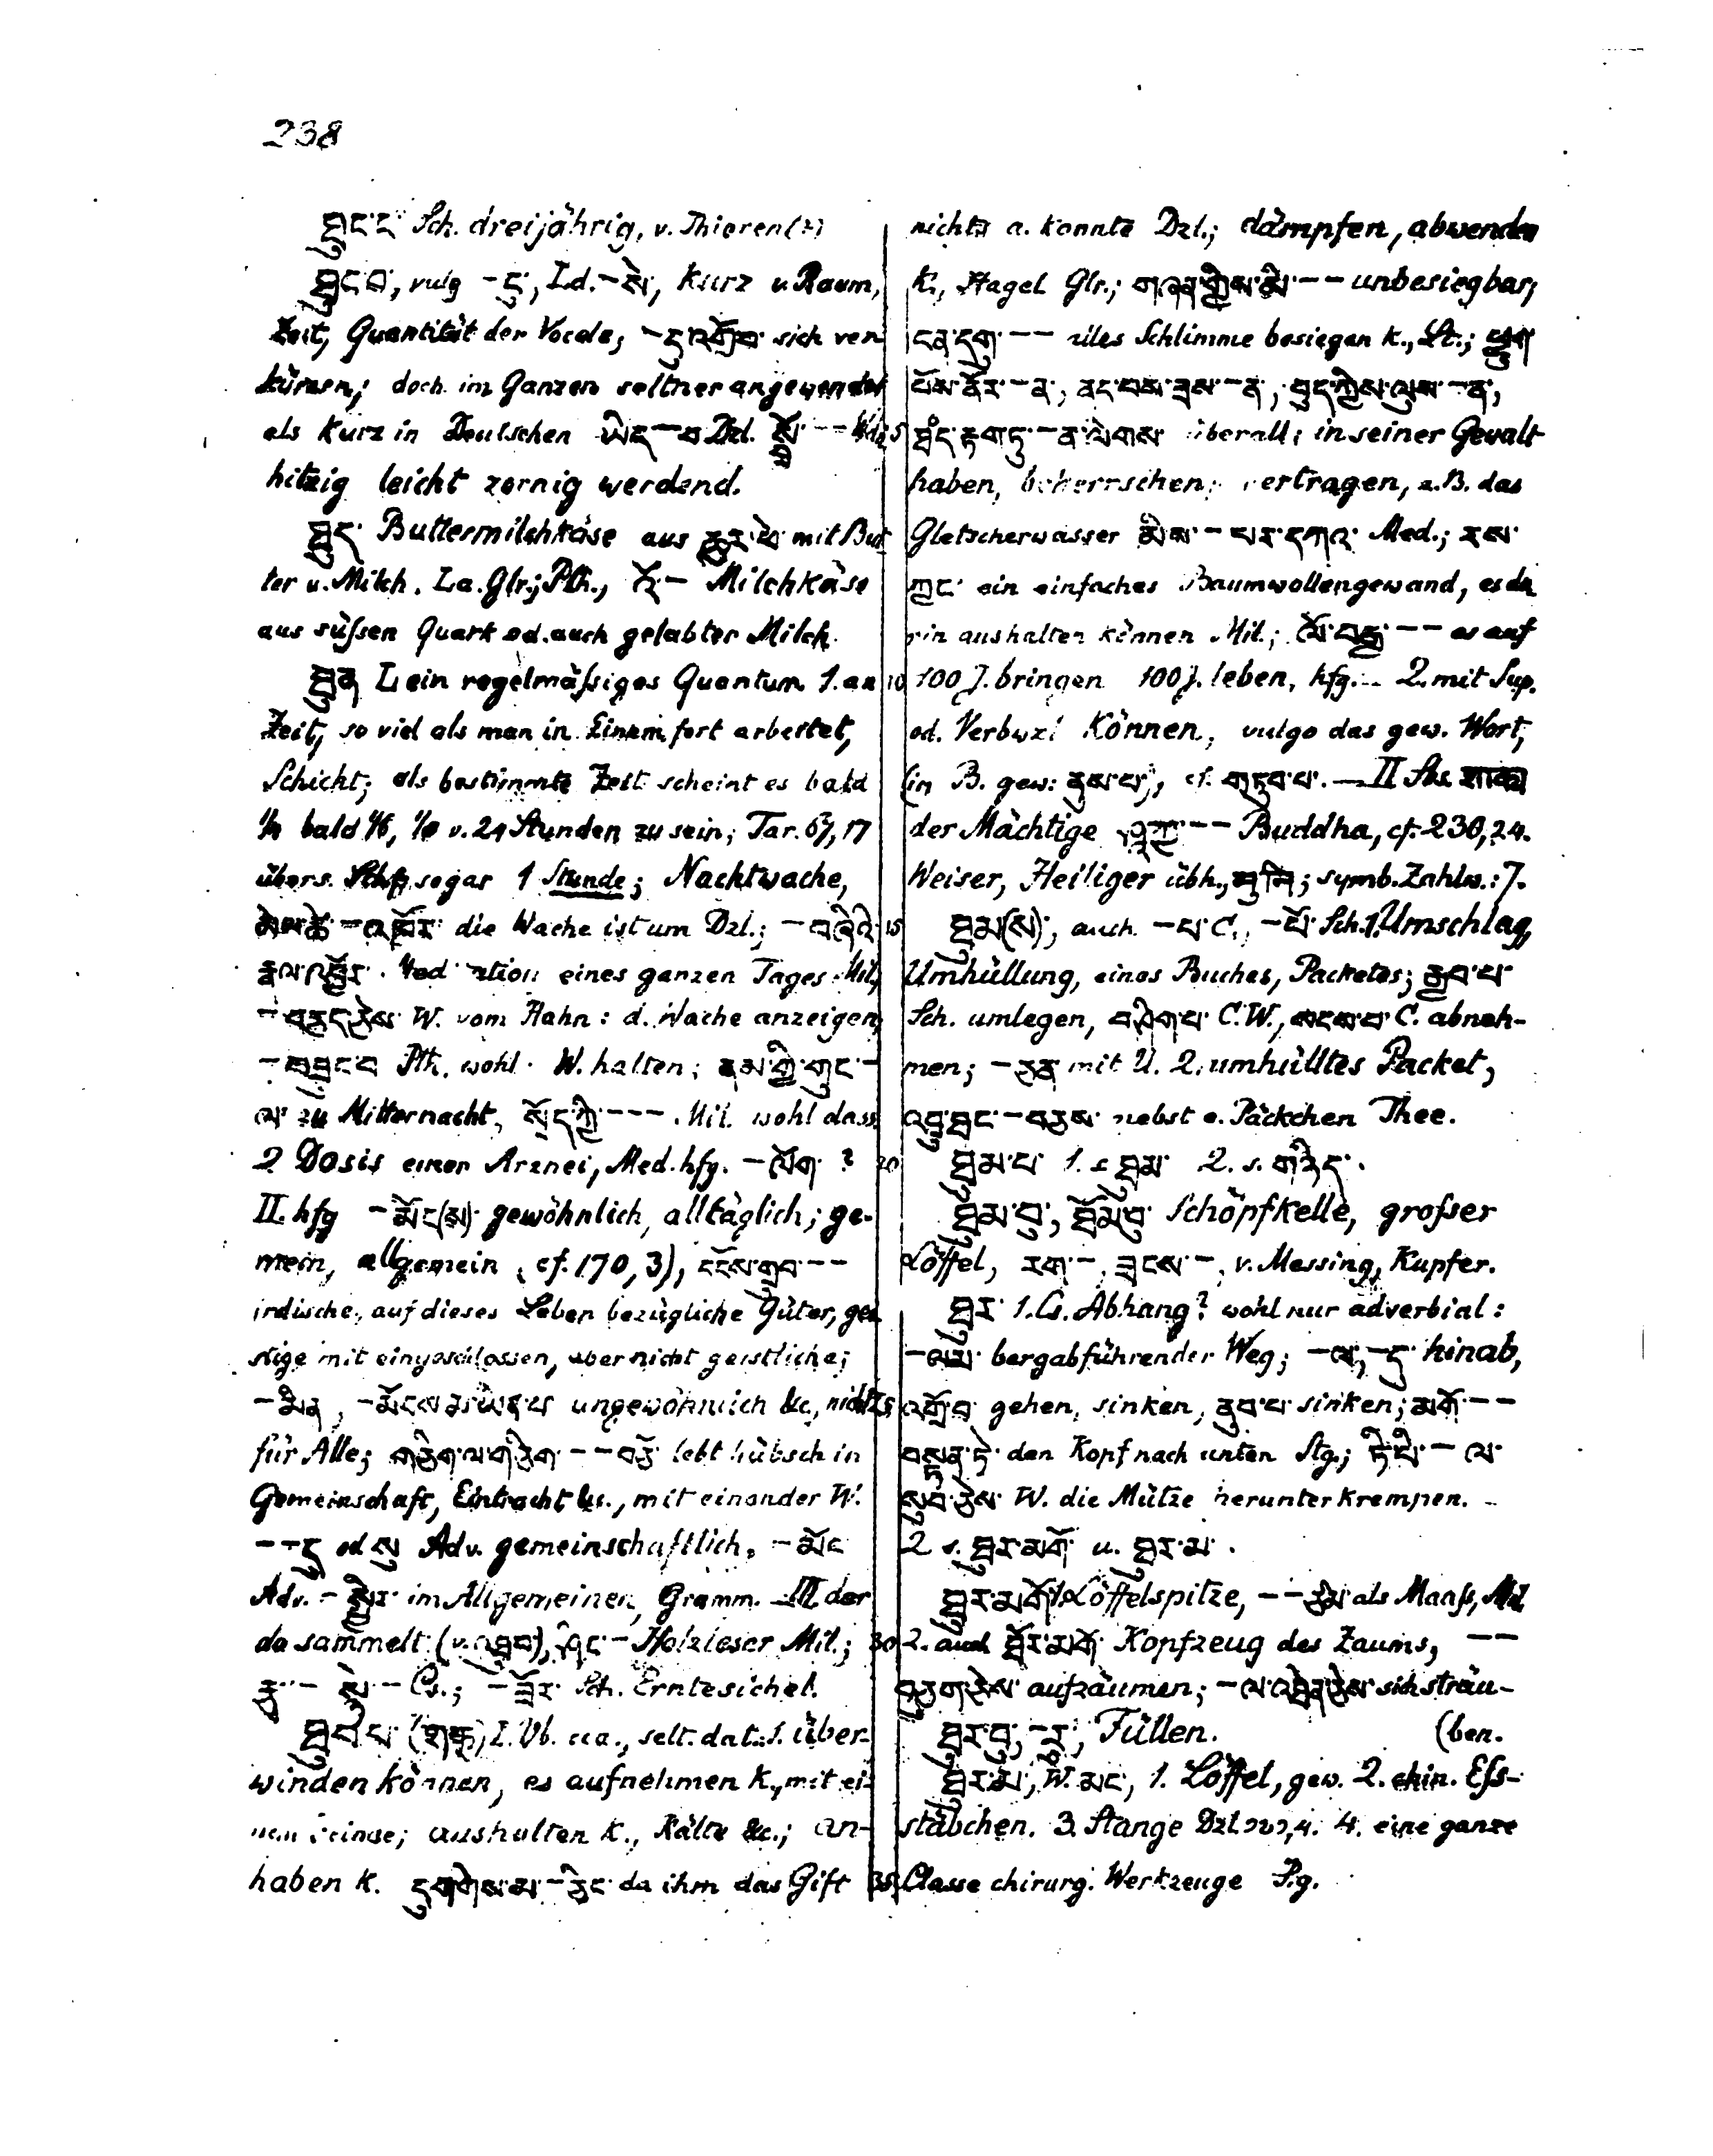 238
ཐུང་ང་ Sch. dreijährig, v. Thieren (?)
ཐུང་བ་, vulg – ངུ་, Ld. – སེ་, kurz v. Raum,
Zeit, Quantität der Vocale; – དུ་འགྲོ་བ་ sich ver
kürzen; doch im Ganzen seltner angewendet
als kurz in Deutschen ཡིད་ – བ Dzl. –– 
hitzig leicht zornig werdend.
ཐུད་ Buttermilchkäse aus ཆུར་ཕེ་ mit But
ter u. Milch. Ld. Glr.; Pth., འོ་ – Milchkäse
aus süssen Quark od. auch gelabter Milch.
ཐུན་ I. ein regelmässiges Quantum 1. an
Zeit, so viel als man in Einem fort arbeitet,
Schicht; als bestimmte Zeit scheint es bald
bald 1/6, 1/8 v. 24 Stunden zu sein; Tar. 67, 17
übers. Schf. sogar 1 Stunde; Nachtwache,
མེལ་ཚེ་ – འཁོར་ die Wache ist um Dzl.; – བཞིའི་
རྣལ་འབྱོར་ eines ganzen Tages Mil.,
– བརྡ་ W. vom Hahn: d. Wache anzeigen,
– བསྲུང་བ Pth. wohl W. halten; ནམ་གྱི་གུང་ –
ལ་ zu Mitternacht, སྲོད་ཀྱི་ ––– Mil. wohl dass.
2 Dosis einer Arznei, Med. hfg. – ལོག་ ?
II. hfg – མོང་(མ)་ gewöhnlich, alltäglich; ge-
mein, allgemein (cf. 170, 3), དངོས་གྲུབ་ ––
irdische, auf dieses Leben bezügliche Güter, gei
stige mit eingeschlossen, aber nicht geistliche;
– མིན་, – མོངས་མ་ཡིན་པ ungewöhnlich &c., nicht
für Alle; གཅིག་ལ་གཅིག་ –– lebt hübsch in
Gemeinschaft, Eintracht &c., mit einander W.
–– དུ od སུ Adv. gemeinschaftlich, – མོང
Adv. – im Allgemeinen, Gramm. – III der
da sammelt (v. འཐུབ), ཤིང་ – Holzleser Mil.;
རྩྭ་ – – Cs.; – ཟོར་ Sch. Erntesichel.
ཐུབ་པ་ I. Vb. cca., selt. dat. 1. über-
winden können, es aufnehmen k., mit ei-
nem Feinde; aushalten k., Kälte &c.; an-
haben k. དུག་གིས་མ་ – ཅིང་ da ihm das Gift
nichts a. konnte Dzl.; dämpfen, abwenden
k., Hagel Glr.; གཞན་གྱིས་མི་ –– unbesiegbar;
ངན་དགུ་ –– alles Schlimme besiegen k., Lt.;
– ན་, ནང་བས་ཟས་ – ན་, བུད་ཀྱིས་ལུས་ – ན་,
– ན་ལེགས་ überall: in seiner Gewalt
haben, beherrschen; vertragen, z.B. das
Gletscherwasser མིས་ – པར་དཀའ་ Med.; རས་
རྐྱང་ ein einfaches Baumwollengewand, es da
rin aushalten können Mil.; ལོ་བརྒྱ་ –– es auf
100 J. bringen 100 J. leben, hfg. – 2. mit Sup.
od. Verbwzl Können, vulgo das gew. Wort,
(in B. gew: ནུས་པ་), cf. གཏུབ་པ་. – II Sbs.
der Mächtige ཤཱཀྱ་ –– Buddha, cf. 230, 24.
Weiser, Heiliger übh., मुनि; symb. Zahlw.: 7.
ཐུམ(ས)་, auch – པ་ C., – པོ་ Sch. 1. Umschlag,
Umhüllung, eines Buches, Packetes; རྒྱབ་པ་
Sch. umlegen, བཤིག་པ་ C. W., སངས་པ་ C. abneh-
men; – ཅན་ mit U. 2. umhülltes Packet,
– བཅས་ nebst e. Päckchen Thee.
ཐུམ་པ་ 1. = ཐུམ་ 2. s. གཉིད་.
ཐུམ་བུ་, ཐོམ་བུ་ Schöpfkelle, grosser
Löffel, རག་ –, ཟངས་ –, v. Messing, Kupfer.
ཐུར་ 1. Cs. Abhang? wohl nur adverbial:
– ལམ་ bergabführender Weg; – ལ་, – དུ་ hinab,
འགྲོ་བ་ gehen, sinken, ནུབ་པ་ sinken; མགོ་ ––
བསྟན་ཏེ་ den Kopf nach unten Stg.; ཏི་པི་ – ལ་
W. die Mütze herunter krempen. –
2 s. ཐུར་མགོ་ u. ཐུར་མ་.
ཐུར་མགོ་ 1. Löffelspitze, –– als Maass, Mil
2. auch ཐོར་མགོ་ Kopfzeug des Zaums, ––
aufzäumen; – ལ་ sich sträu-
ཐུར་བུ་, – རུ་, Füllen. (ben.
ཐུར་མ་, W. མང་, 1. Löffel, gew. 2. chin. Ess-
stäbchen. 3. Stange Dzl. 4. eine ganze
Classe chirurg. Werkzeuge S.g.
5
10
15
20
25
30
35